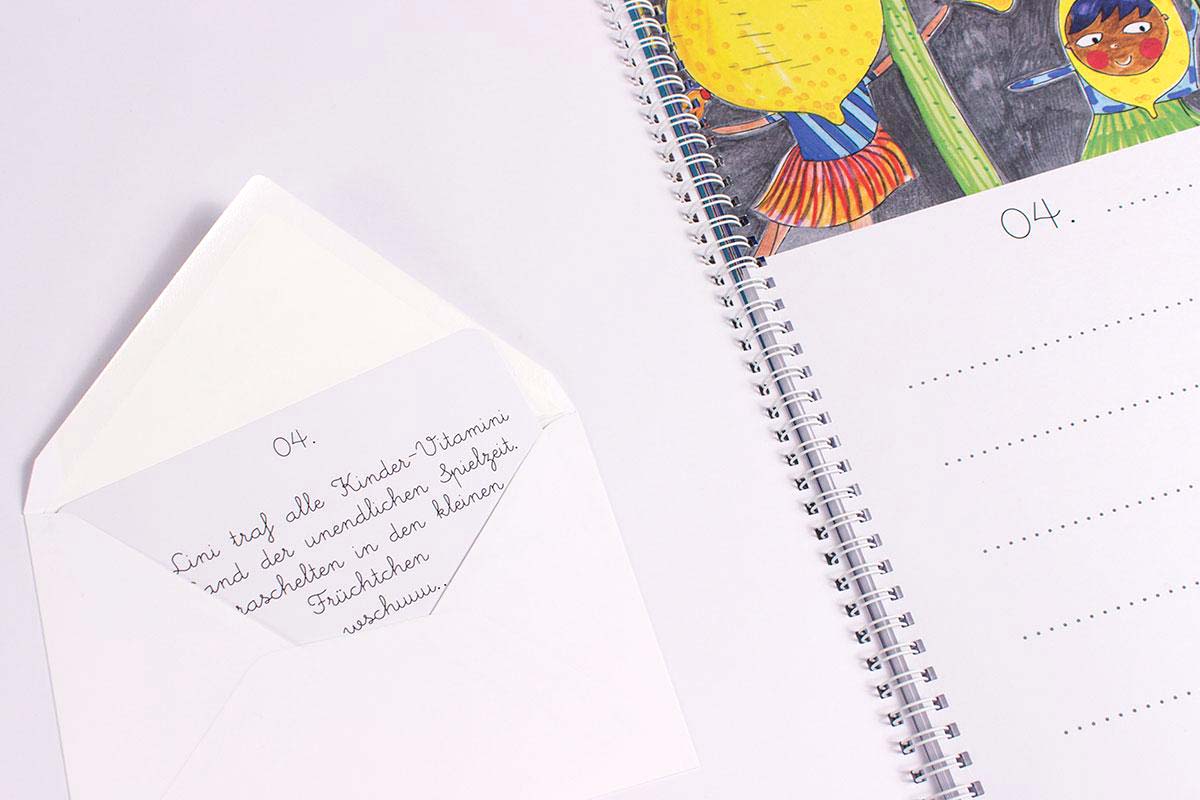 04.
Lini traf alle Kinder-Vitamini
and der unendlichen Spielzeit.
raschelten in den kleinen
Früchtchen
wschuuu..
04.